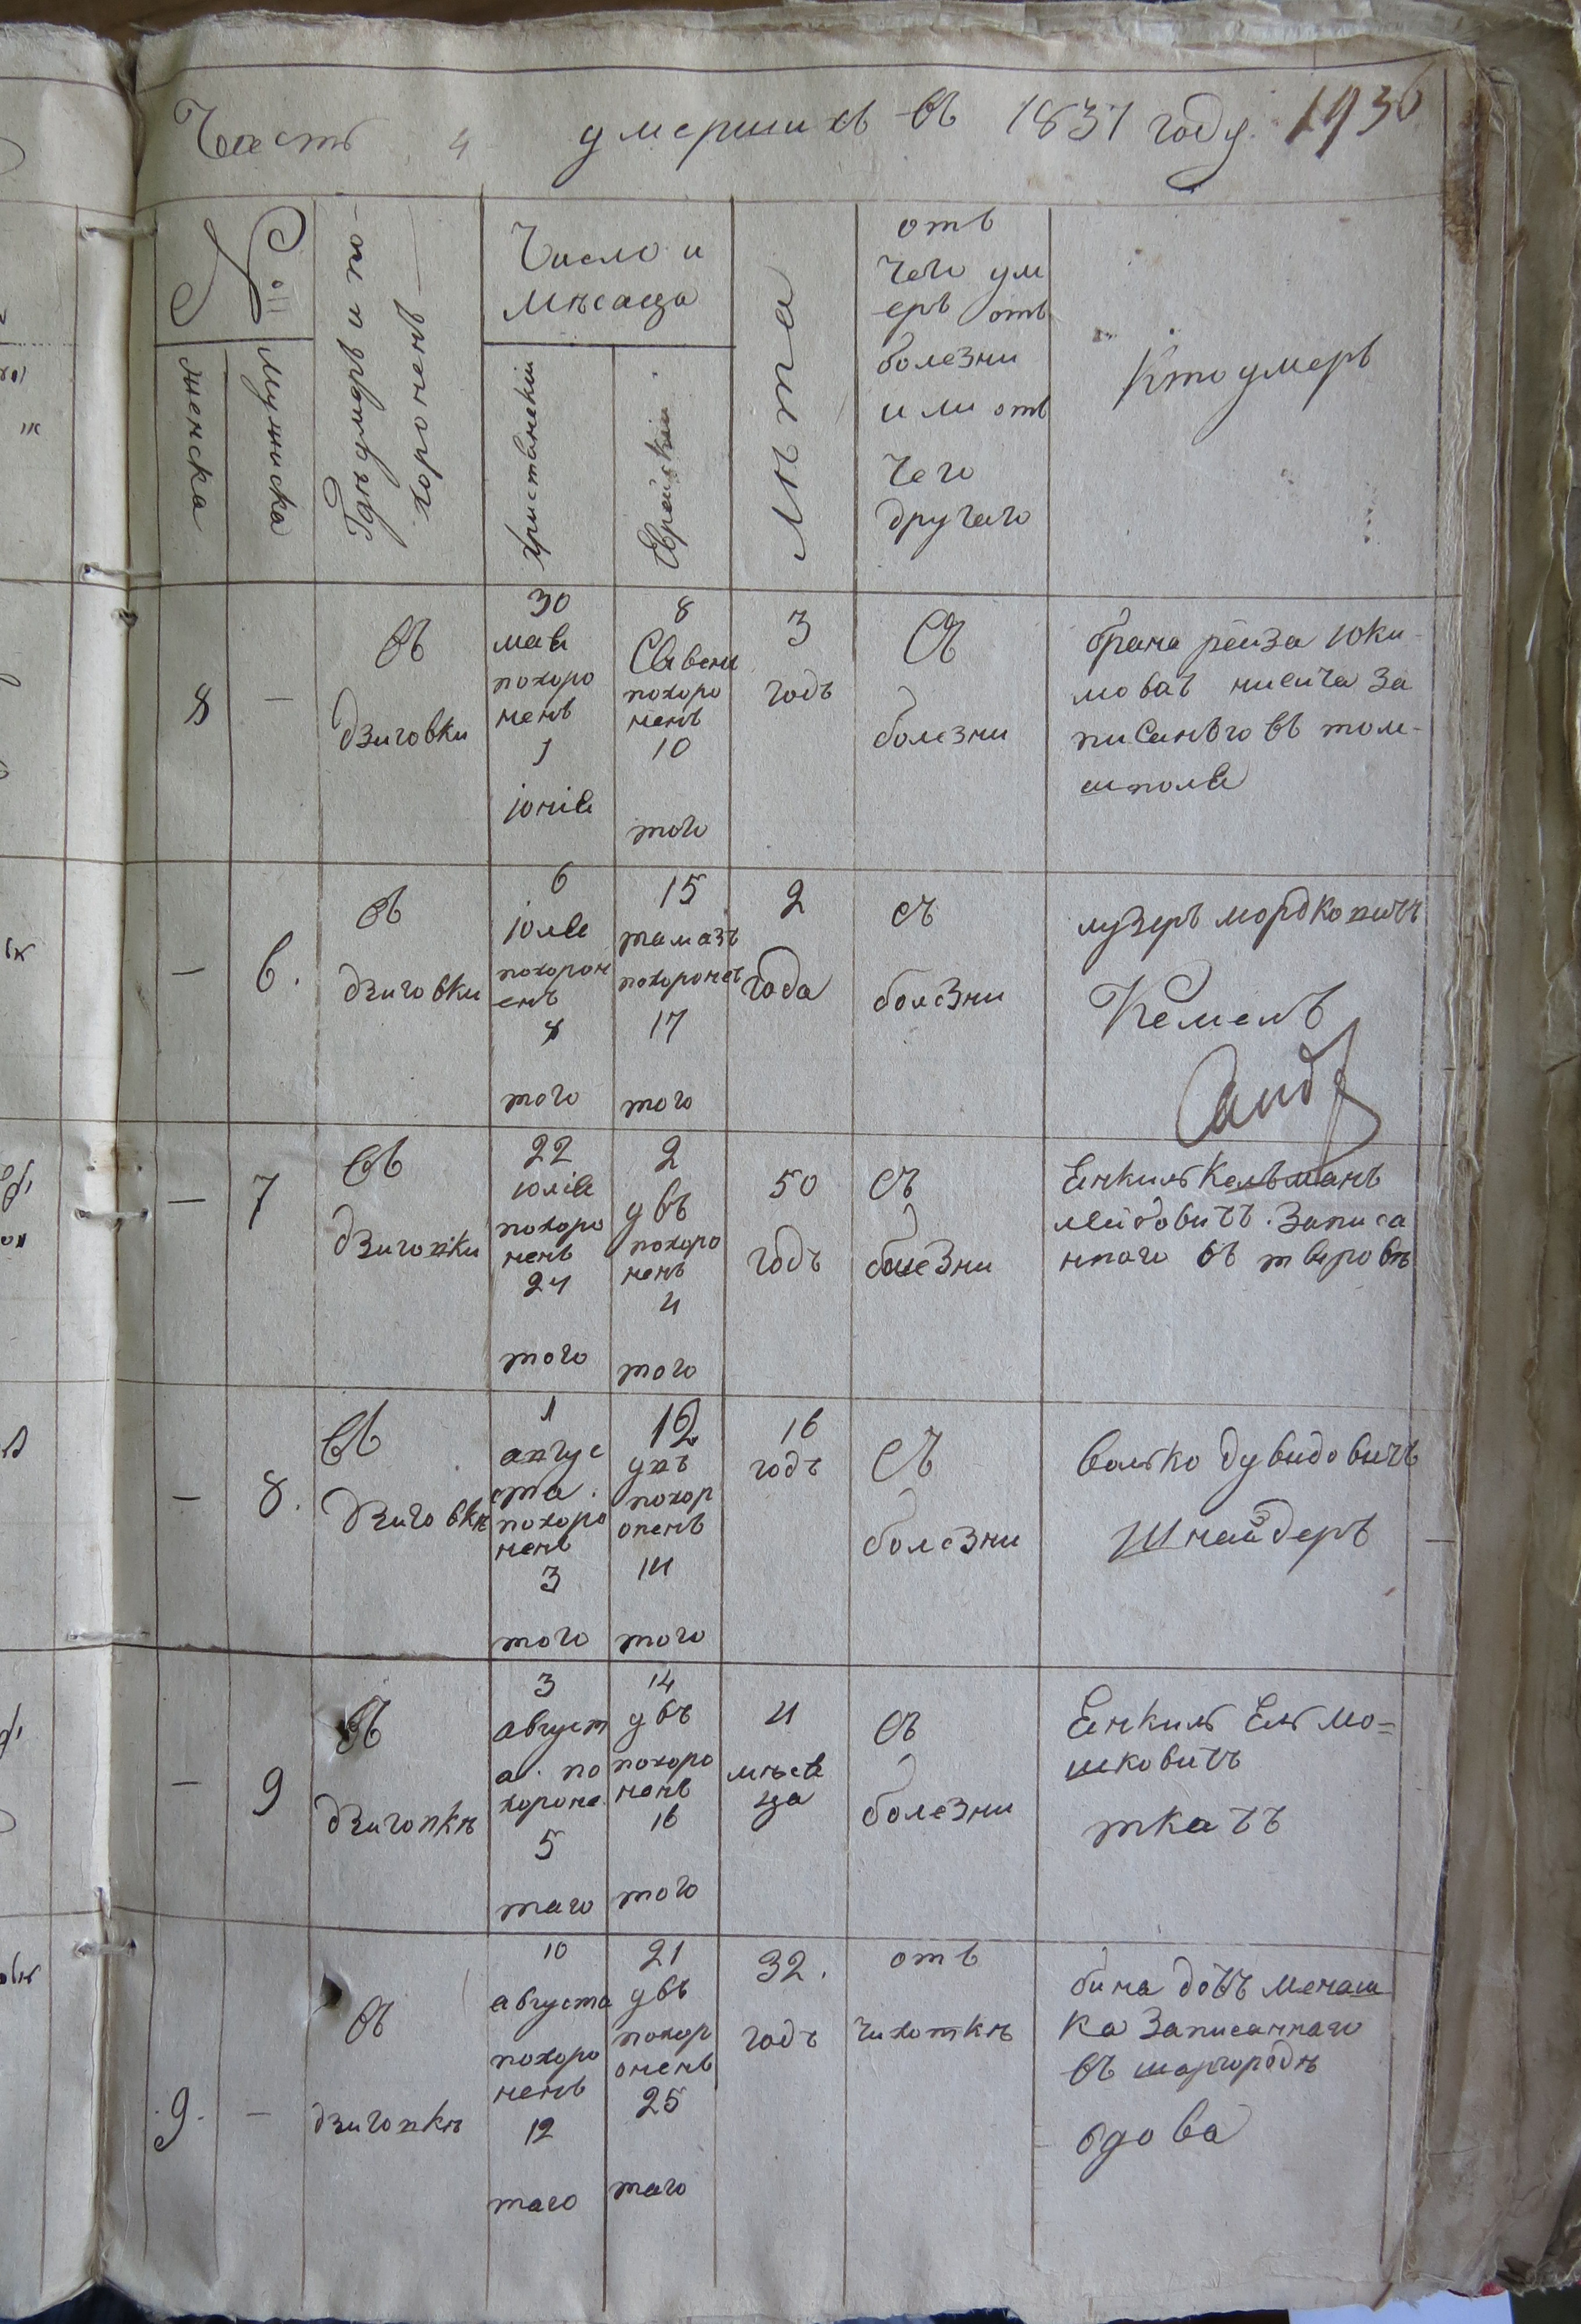 Часть 4 умершихъ въ 1837 году 1936
№
женска
мужиска
Гдѣ умѣръ и по-
хороненъ
Число и
мѣсаца
христианскіи
Еврейскіи
Лѣта
отъ
чего ум
еръ отъ
болезни
или отъ
чего
другаго
Кто умеръ
8
—
въ
дзиговки
30
мая
похоро
ненъ
1
юнія
8
похоро
ненъ
10
того
3
годъ
съ
болезни
брана реиза юки-
за
писанъго въ том-
шполя
—
6.
въ
дзиговки
6
юля
похорон
енъ
8
того
15
тамазъ
похороненъ
17
того
2
года
съ
болезни
лузеръ мордковичъ
Кемелъ
—
7
въ
дзиговки
22
юлія
похоро
ненъ
24
того
2
увъ
похоро
ненъ
4
того
50
годъ
съ
болезни
Енкиль Кельманъ
леидовичъ. Записа
нного въ тывровѣ
—
8.
въ
дзиговкѣ
1
авгус
та.
похоро
ненъ
3
того
12
увъ
похор
оненъ
14
того
16
годъ
съ
болезни
волько дувидовичъ
шнайдеръ
—
9
въ
дзиговкѣ
3
август
а. по
хороне
5
таго
14
увъ
похоро
ненъ
16
того
4
мѣся
ца
съ
болезни
Енкиль Ель мо=
шковичъ
ткачъ
9.
—
въ
дзиговкѣ
10
августа
похоро
ненъ
12
таго
21
увъ
похор
оненъ
25
таго
32.
годъ
отъ
чихоткѣ
бина дочъ менаш
ка Записаннаго
въ шаргородѣ
вдова